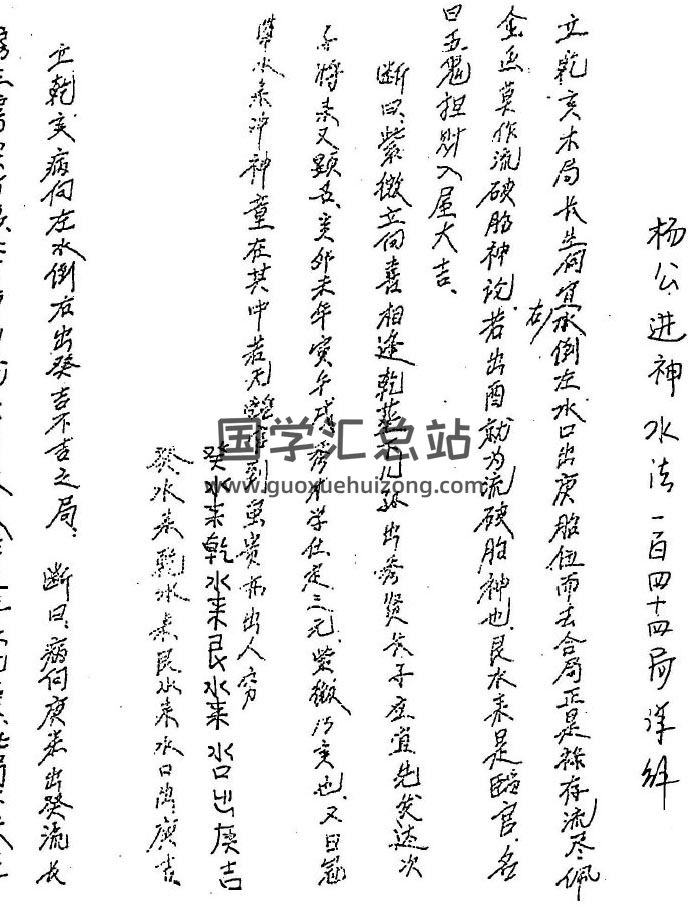 杨公进神水法一百四十四局详解
立乾亥木局长生向宜右水倒左水口出庚胎位而去合局正是禄存流尽佩
金鱼莫作流破胎神论.若出酉就为流破胎神也.艮水来是临官.名
曰五鬼担财入屋大吉.
断曰.紫微立向喜相逢乾葬万儿孙出秀贤长子应宜先发达次
子将来又显名.亥卯未年寅午戌 秀才学仕定三元.紫微乃亥也.又曰冠
带水来冲神童在其中若无 到虽贵亦出人穷
癸水来乾水来艮水来水口出庚吉
癸.水来乾水来艮水来水口出庚吉.
立乾亥病向左水倒右出癸吉不吉之局.断曰.病向庚来出癸流长
国学汇总站
www.guoxuehuizong.com